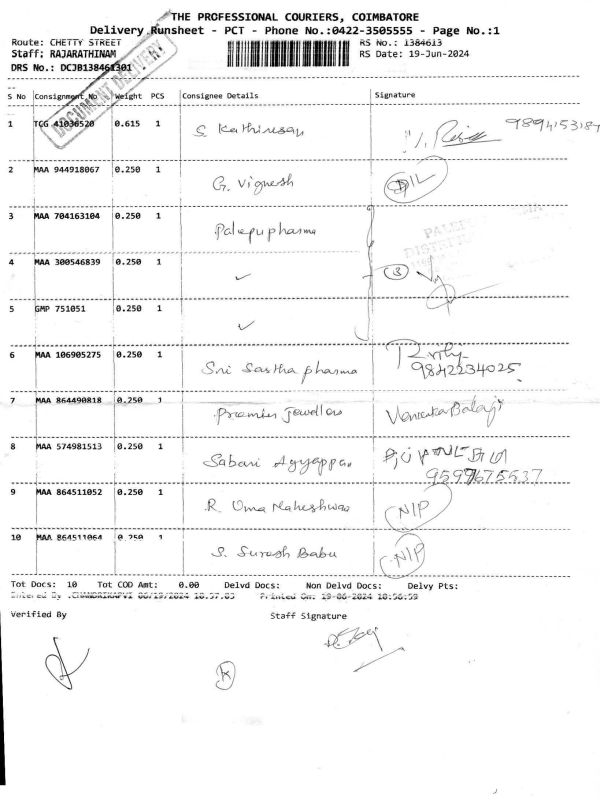 THE PROFESSIONAL COURIERS, COIMBATORE
Delivery Runsheet - PCT - Phone No.:0422-3505555 - Page No.:1
Route: CHETTY STREET RS No.: 1384613
Staff: RAJARATHINAM RS Date: 19-Jun-2024
DRS No.: DCJB138461301
DOCUMENT DELIVERY
S No Consignment No Weight PCS Consignee Details Signature
1 TCG 41036520 0.615 1 S. Kathiresan
2 MAA 944918067 0.250 1 G. Vignesh DIL
3 MAA 704163104 0.250 1 Palepu pharma
4 MAA 300546839 0.250 1 ✓ 3
5 GMP 751051 0.250 1 ✓
6 MAA 106905275 0.250 1 Sri Sastha pharma 9842234025
7 MAA 864490818 0.250 1 Premier Jewellers Venkata Balaji
8 MAA 574981513 0.250 1 Sabari Ayyappan
9 MAA 864511052 0.250 1 R. Uma Maheshwar NIP
10 MAA 864511064 0.250 1 S. Suresh Babu NIP
Tot Docs: 10 Tot COD Amt: 0.00 Delvd Docs: Non Delvd Docs: Delvy Pts:
Entered By .CHANDRIKAPVI 06/19/2024 18.57.03 Printed On: 19-06-2024 18:58:59
Verified By Staff Signature